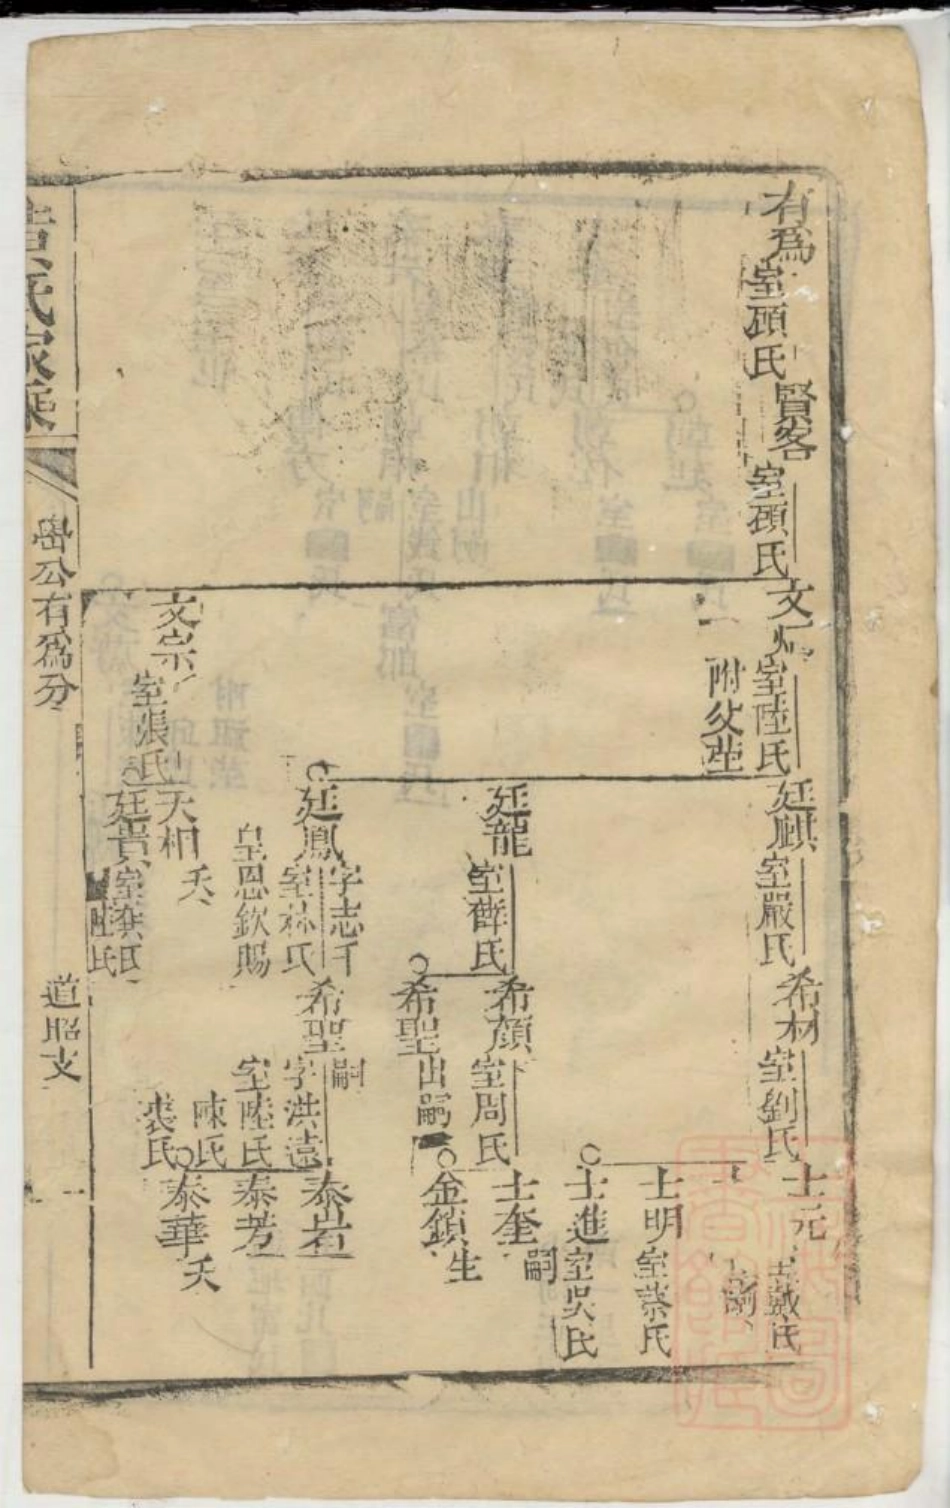 有爲
室顧氏
賢客
室顧氏
文
室陸氏
附父塋
文宗
室張氏
廷麒
室嚴氏
廷龍
室薛氏
廷鳳
字志千
室林氏
皇恩欽賜
天相
夭
廷貴
室龔氏
氏
希材
室劉氏
希顔
室周氏
希聖
出嗣
希聖
嗣
字洪遠
室陸氏
陳氏
裘氏
士元
戴氏
士明
室蔡氏
士進
室吳氏
士奎
嗣
金鎖
生
泰岩
泰芳
泰華
夭
氏家乘
嵒公有爲分
道昭支